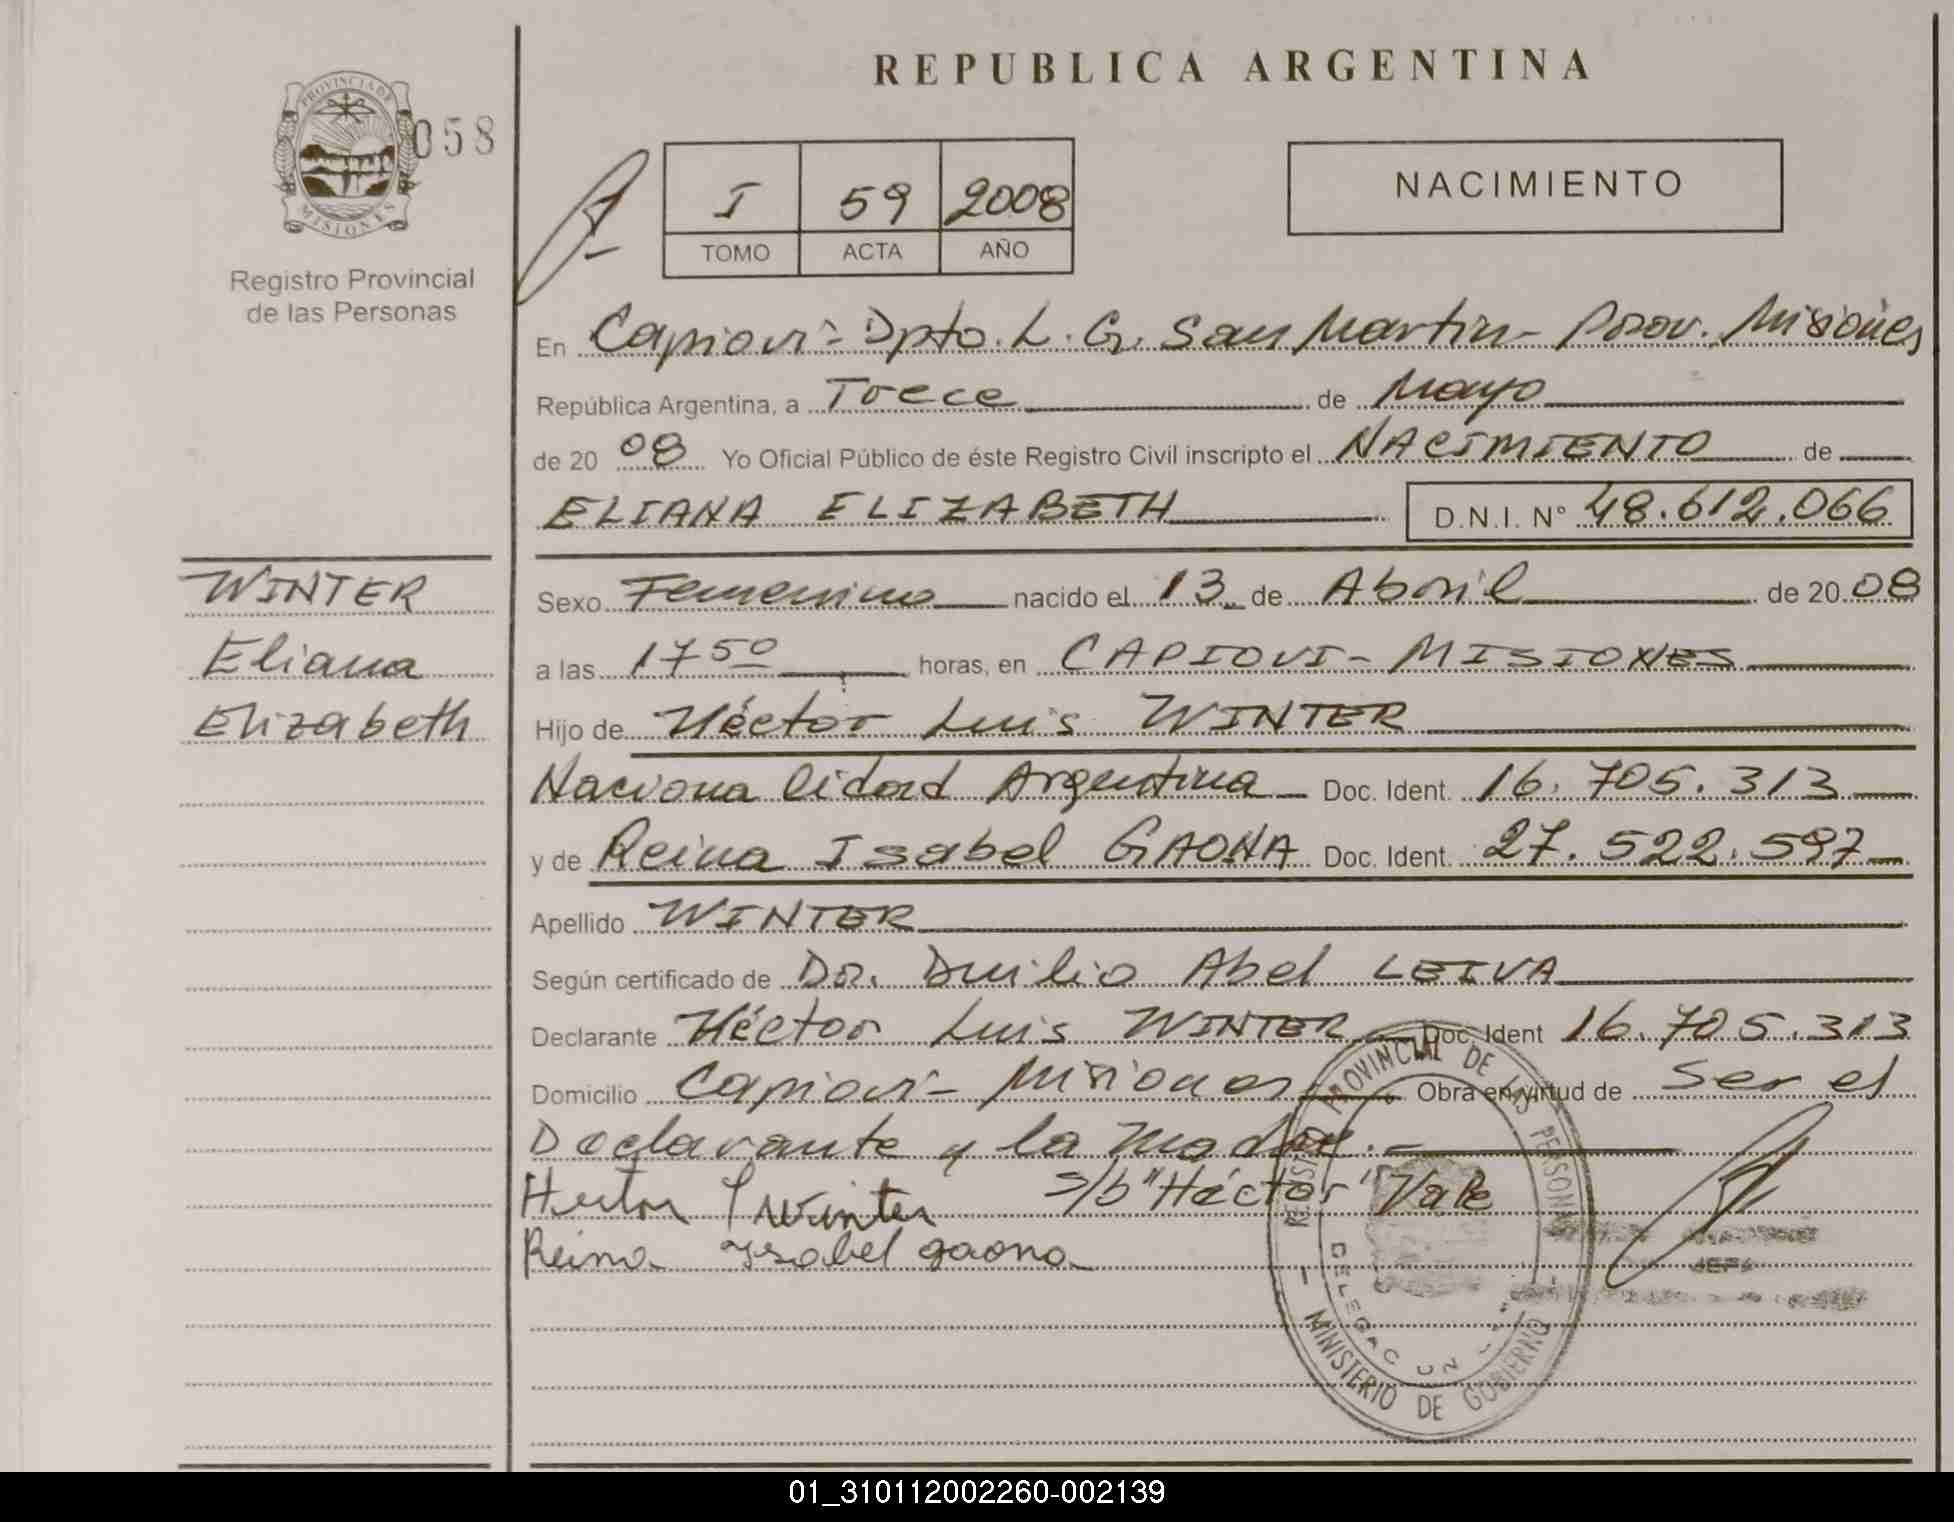 REPUBLICA ARGENTINA
PROVINCIA DE MISIONES
058
Registro Provincial
de las Personas
I 59 2008
TOMO ACTA AÑO
NACIMIENTO
En Capioví - Dpto. L. G. San Martín - Prov. Misiones
República Argentina, a Trece de Mayo
de 20 08 Yo Oficial Público de éste Registro Civil inscripto el NACIMIENTO de
ELIANA ELIZABETH D.N.I. N° 48.612.066
WINTER
Eliana
Elizabeth
Sexo Femenino nacido el 13 de Abril de 20 08
a las 17 50 horas, en CAPIOVI - MISIONES
Hijo de Héctor Luis WINTER
Nacionalidad Argentina Doc. Ident. 16.705.313
y de Reina Isabel GAONA Doc. Ident. 27.522.597
Apellido WINTER
Según certificado de Dr. Duilio Abel LEIVA
Declarante Héctor Luis WINTER Doc. Ident 16.705.313
Domicilio Capioví - Misiones Obra en virtud de Ser el
Declarante y la Madre. -
s/b "Héctor" Vale
Hector Winter
Reina Ysabel gaona
REGISTRO PROVINCIAL DE LAS PERSONAS
- MINISTERIO DE GOBIERNO -
JEFA
01_310112002260-002139